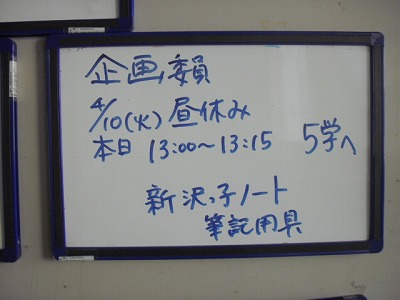 企画委員
4/10(火)昼休み
本日 13:00〜13:15 5学へ
新沢っ子ノート
筆記用具